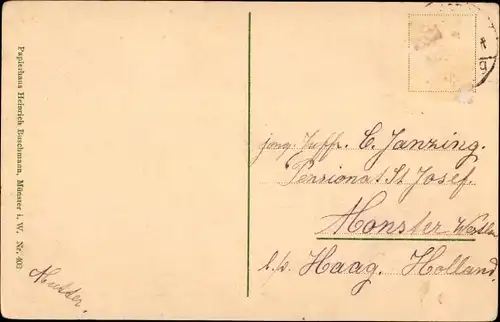 Papierhaus Heinrich Buschmann, Münster i. W. Nr. 403
Mutter.
jong. Juffr. C. Janzing.
Pensionat St Josef.
Monster
b/d. Haag. Holland.